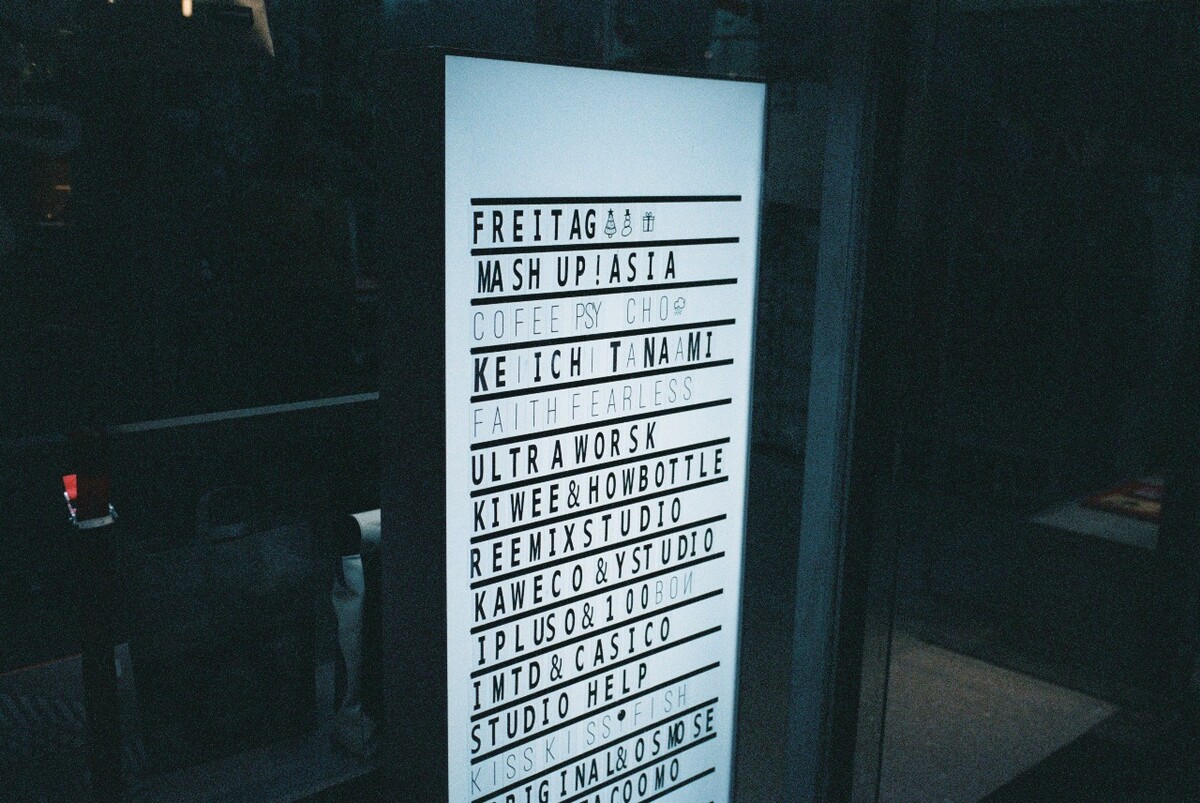 FREITAG
MASH UP!ASIA
COFEE PSY CHO
KEIICHI TANAAMI
FAITH FEARLESS
ULTRAWORSK
KIWEE&HOWBOTTLE
REEMIXSTUDIO
KAWECO &YSTUDIO
IPLUSO&100BON
IMTD& CASICO
STUDIO HELP
KISSKISS•FISH
ORIGINAL&OSMOSE